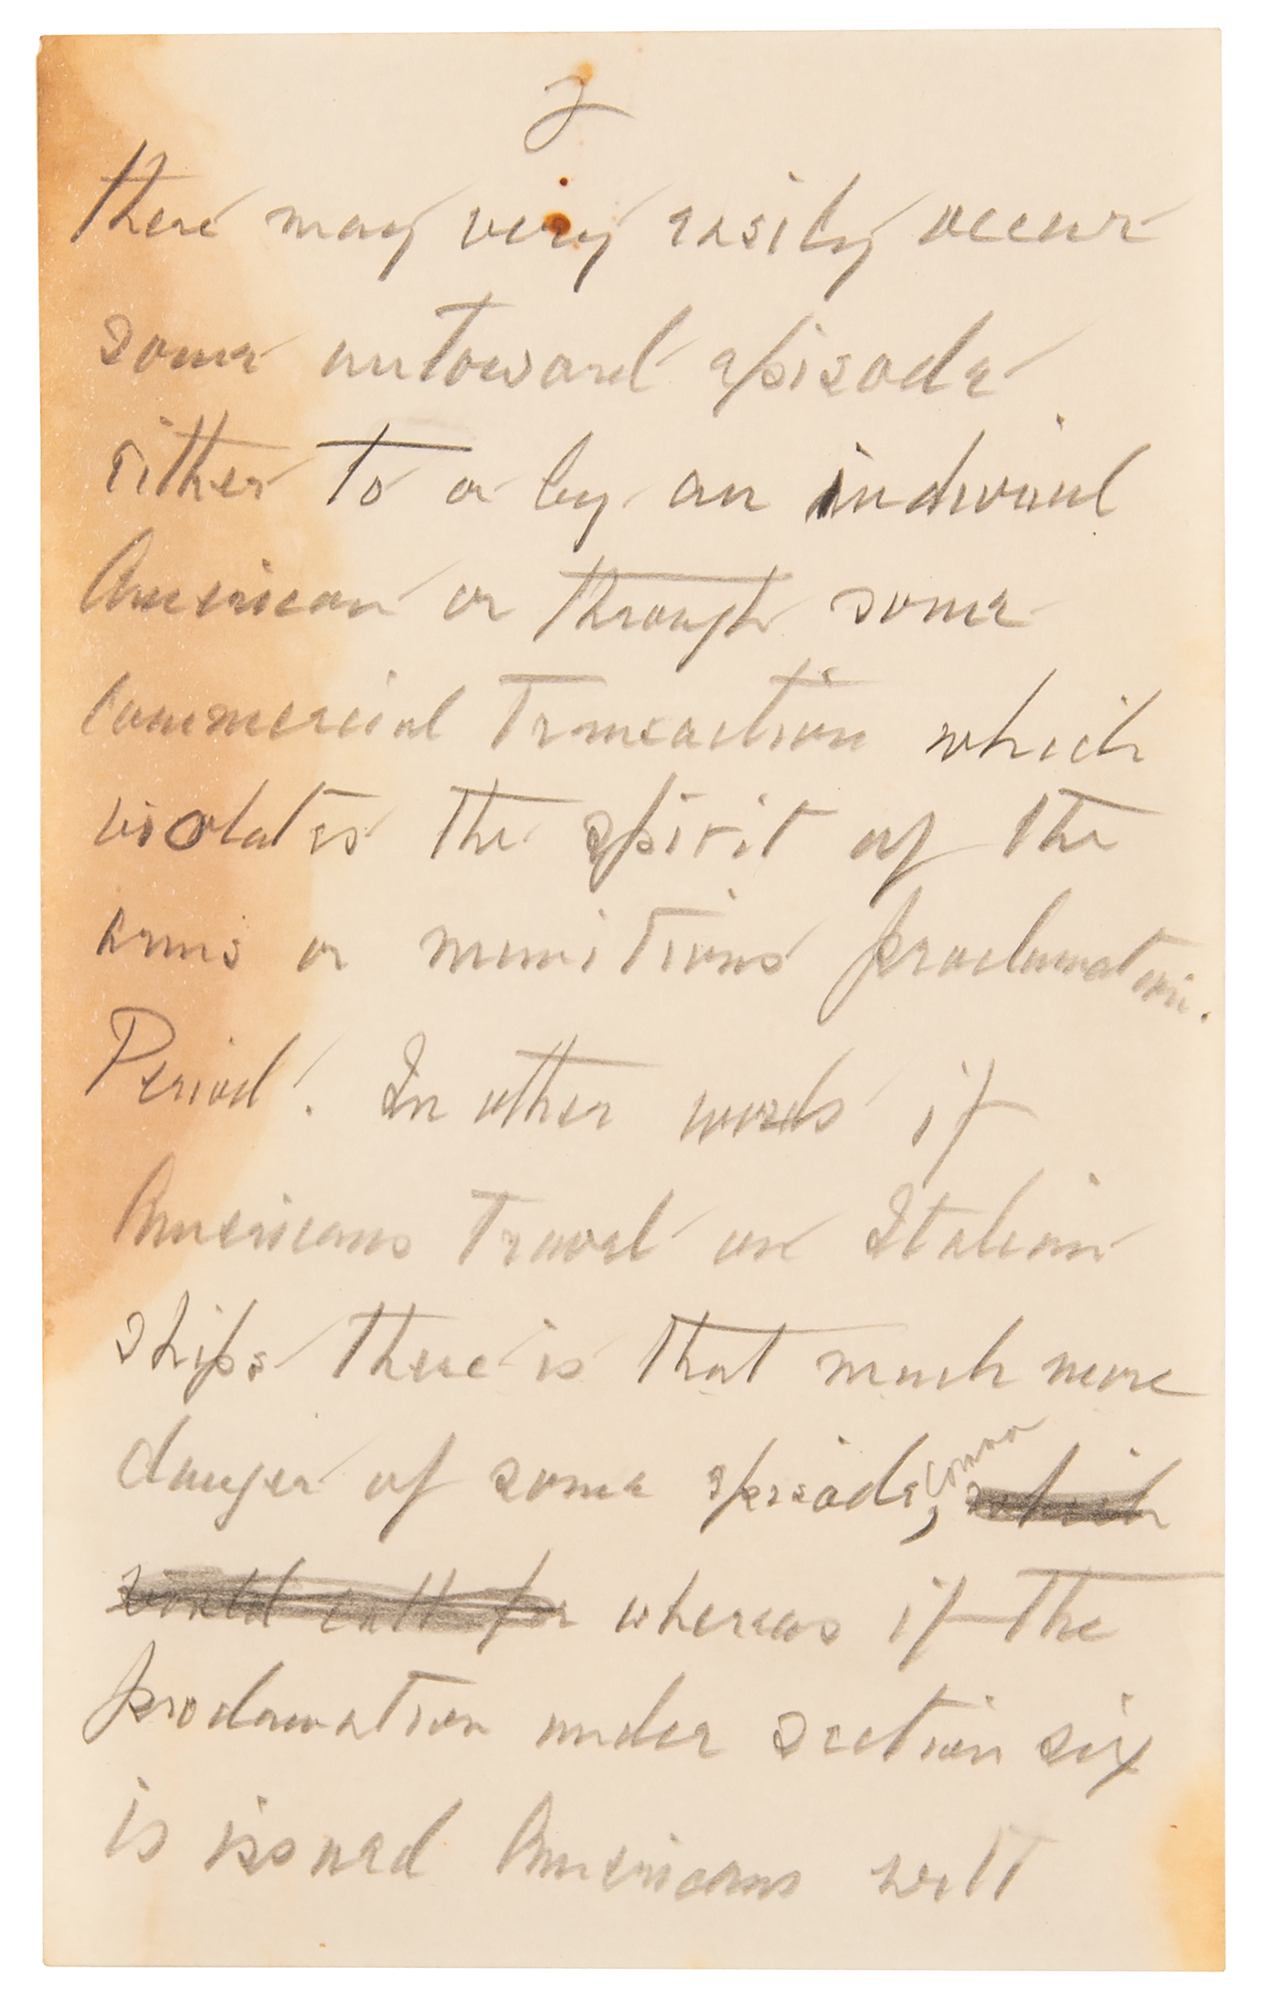 2
there may very easily occur
some untoward episode
either to or by an indivual
American or through some
commercial transaction which
violates the spirit of the
arms or munitions proclamation.
Period. In other words if
Americans travel on Italian
ships there is that much more
danger of some episode, comma which
would call for whereas if the
proclamation under section six
is issued Americans will